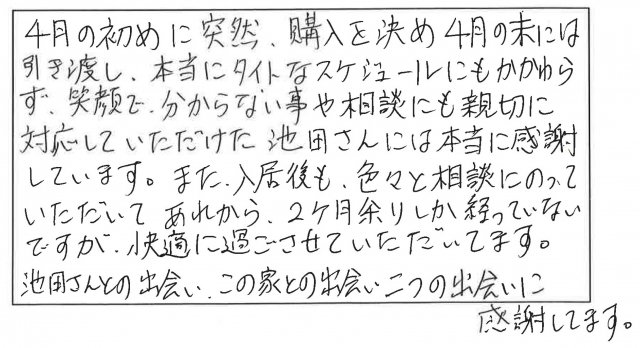 4月の初めに突然、購入を決め4月の末には
引き渡し、本当にタイトなスケジュールにもかかわら
ず、笑顔で、分からない事や相談にも親切に
対応していただけた池田さんには本当に感謝
しています。また、入居後も、色々と相談にのって
いただいて あれから、2ケ月余りしか経っていない
ですが、快適に過ごさせていただいてます。
池田さんとの出会い、この家との出会い二つの出会いに
感謝してます。